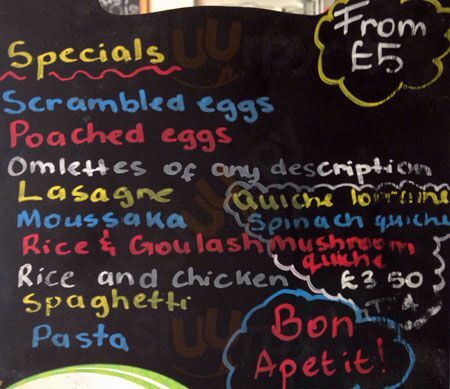 Specials
From
£5
Scrambled eggs
Poached eggs
Omlettes of any description
Lasagne
Moussaka
Rice & Goulash
Rice and chicken
Spaghetti
Pasta
Quiche lorraine
Spinach quiche
Mushroom
quiche
£3 50
Bon
Apetit!